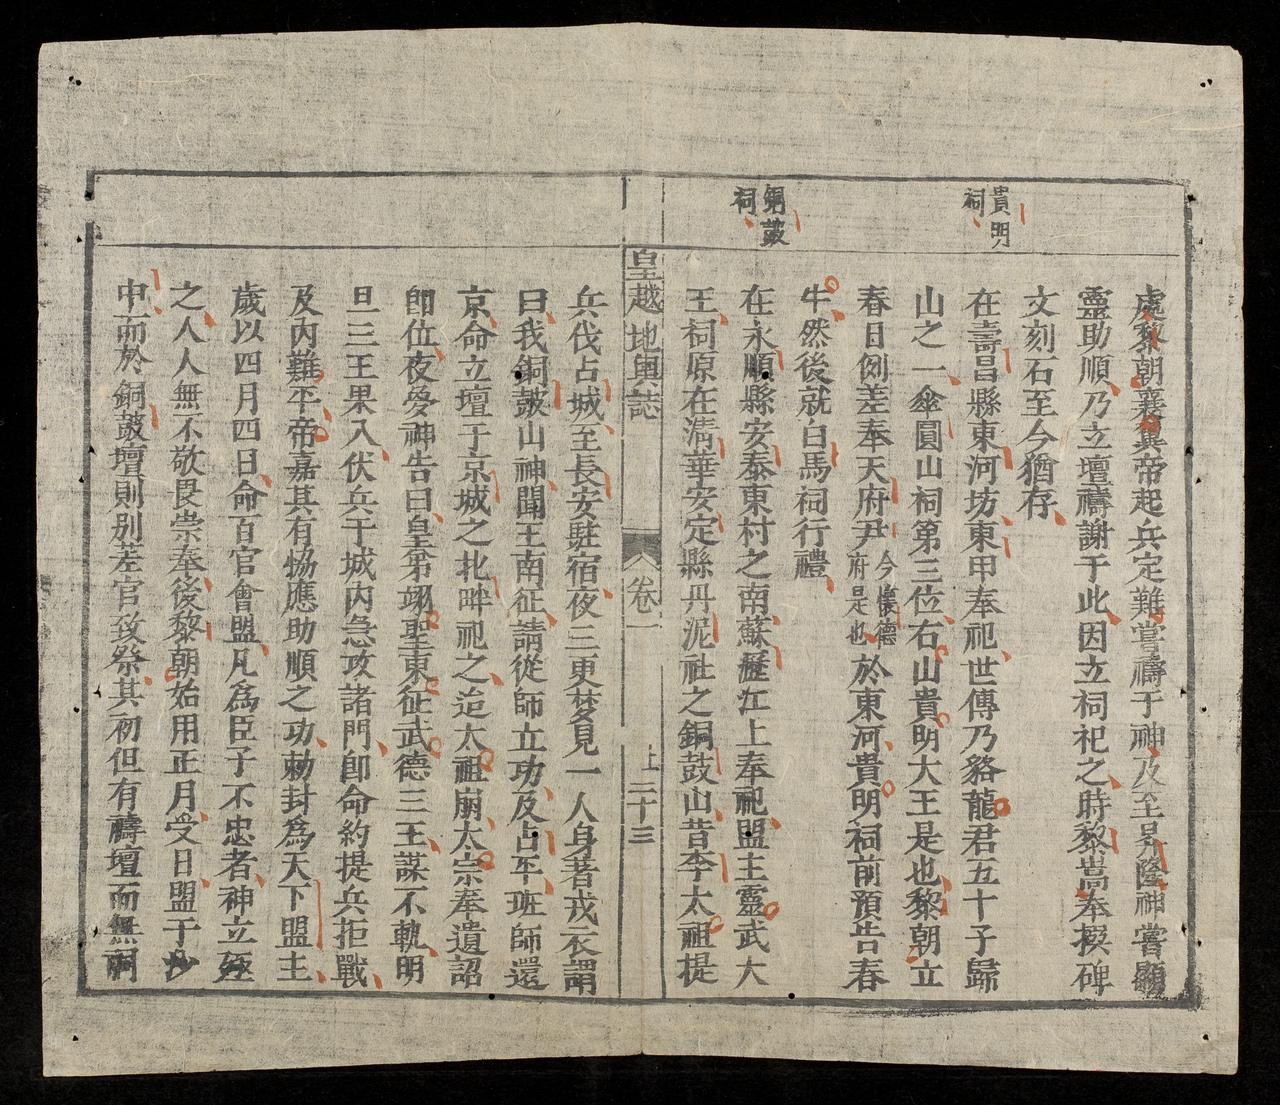 貴明
祠
銅皷
祠
處黎朝襄翼帝起兵定難嘗禱于神及至昇隆神嘗顯
靈助順乃立壇禱謝于此因立祠祀之時黎嵩奉撰碑
文刻石至今猶存
在壽昌縣東河坊東甲奉祀世傳乃貉龍君五十子歸
山之一傘圓山祠第三位右山貴明大王是也黎朝立
春日例差奉天府尹今懷德府是也於東河貴明祠前預告春
牛然後就白馬祠行禮
在永順縣安泰東村之南蘇瀝江上奉祀盟主靈武大
王祠原在清華安定縣丹泥社之銅鼓山昔李太祖提
皇越地輿誌
卷一
上二十三
兵伐占城至長安駐宿夜三更夢見一人身著戎衣謂
曰我銅皷山神聞王南征請從師立功及占平班師還
京命立壇于京城之北畔祀之迨太祖崩太宗奉遺詔
卽位夜夢神告曰皇第翊聖東征武德三王謀不軌明
旦三王果入伏兵于城內急攻諸門卽命約提兵拒戰
及內難平帝嘉其有恊應助順之功勅封爲天下盟主
歲以四月四日命百官會盟凡爲臣子不忠者神立殛
之人人無不敬畏崇奉後黎朝始用正月受日盟于沙
中而於銅皷壇則別差官致祭其初但有禱壇而無祠